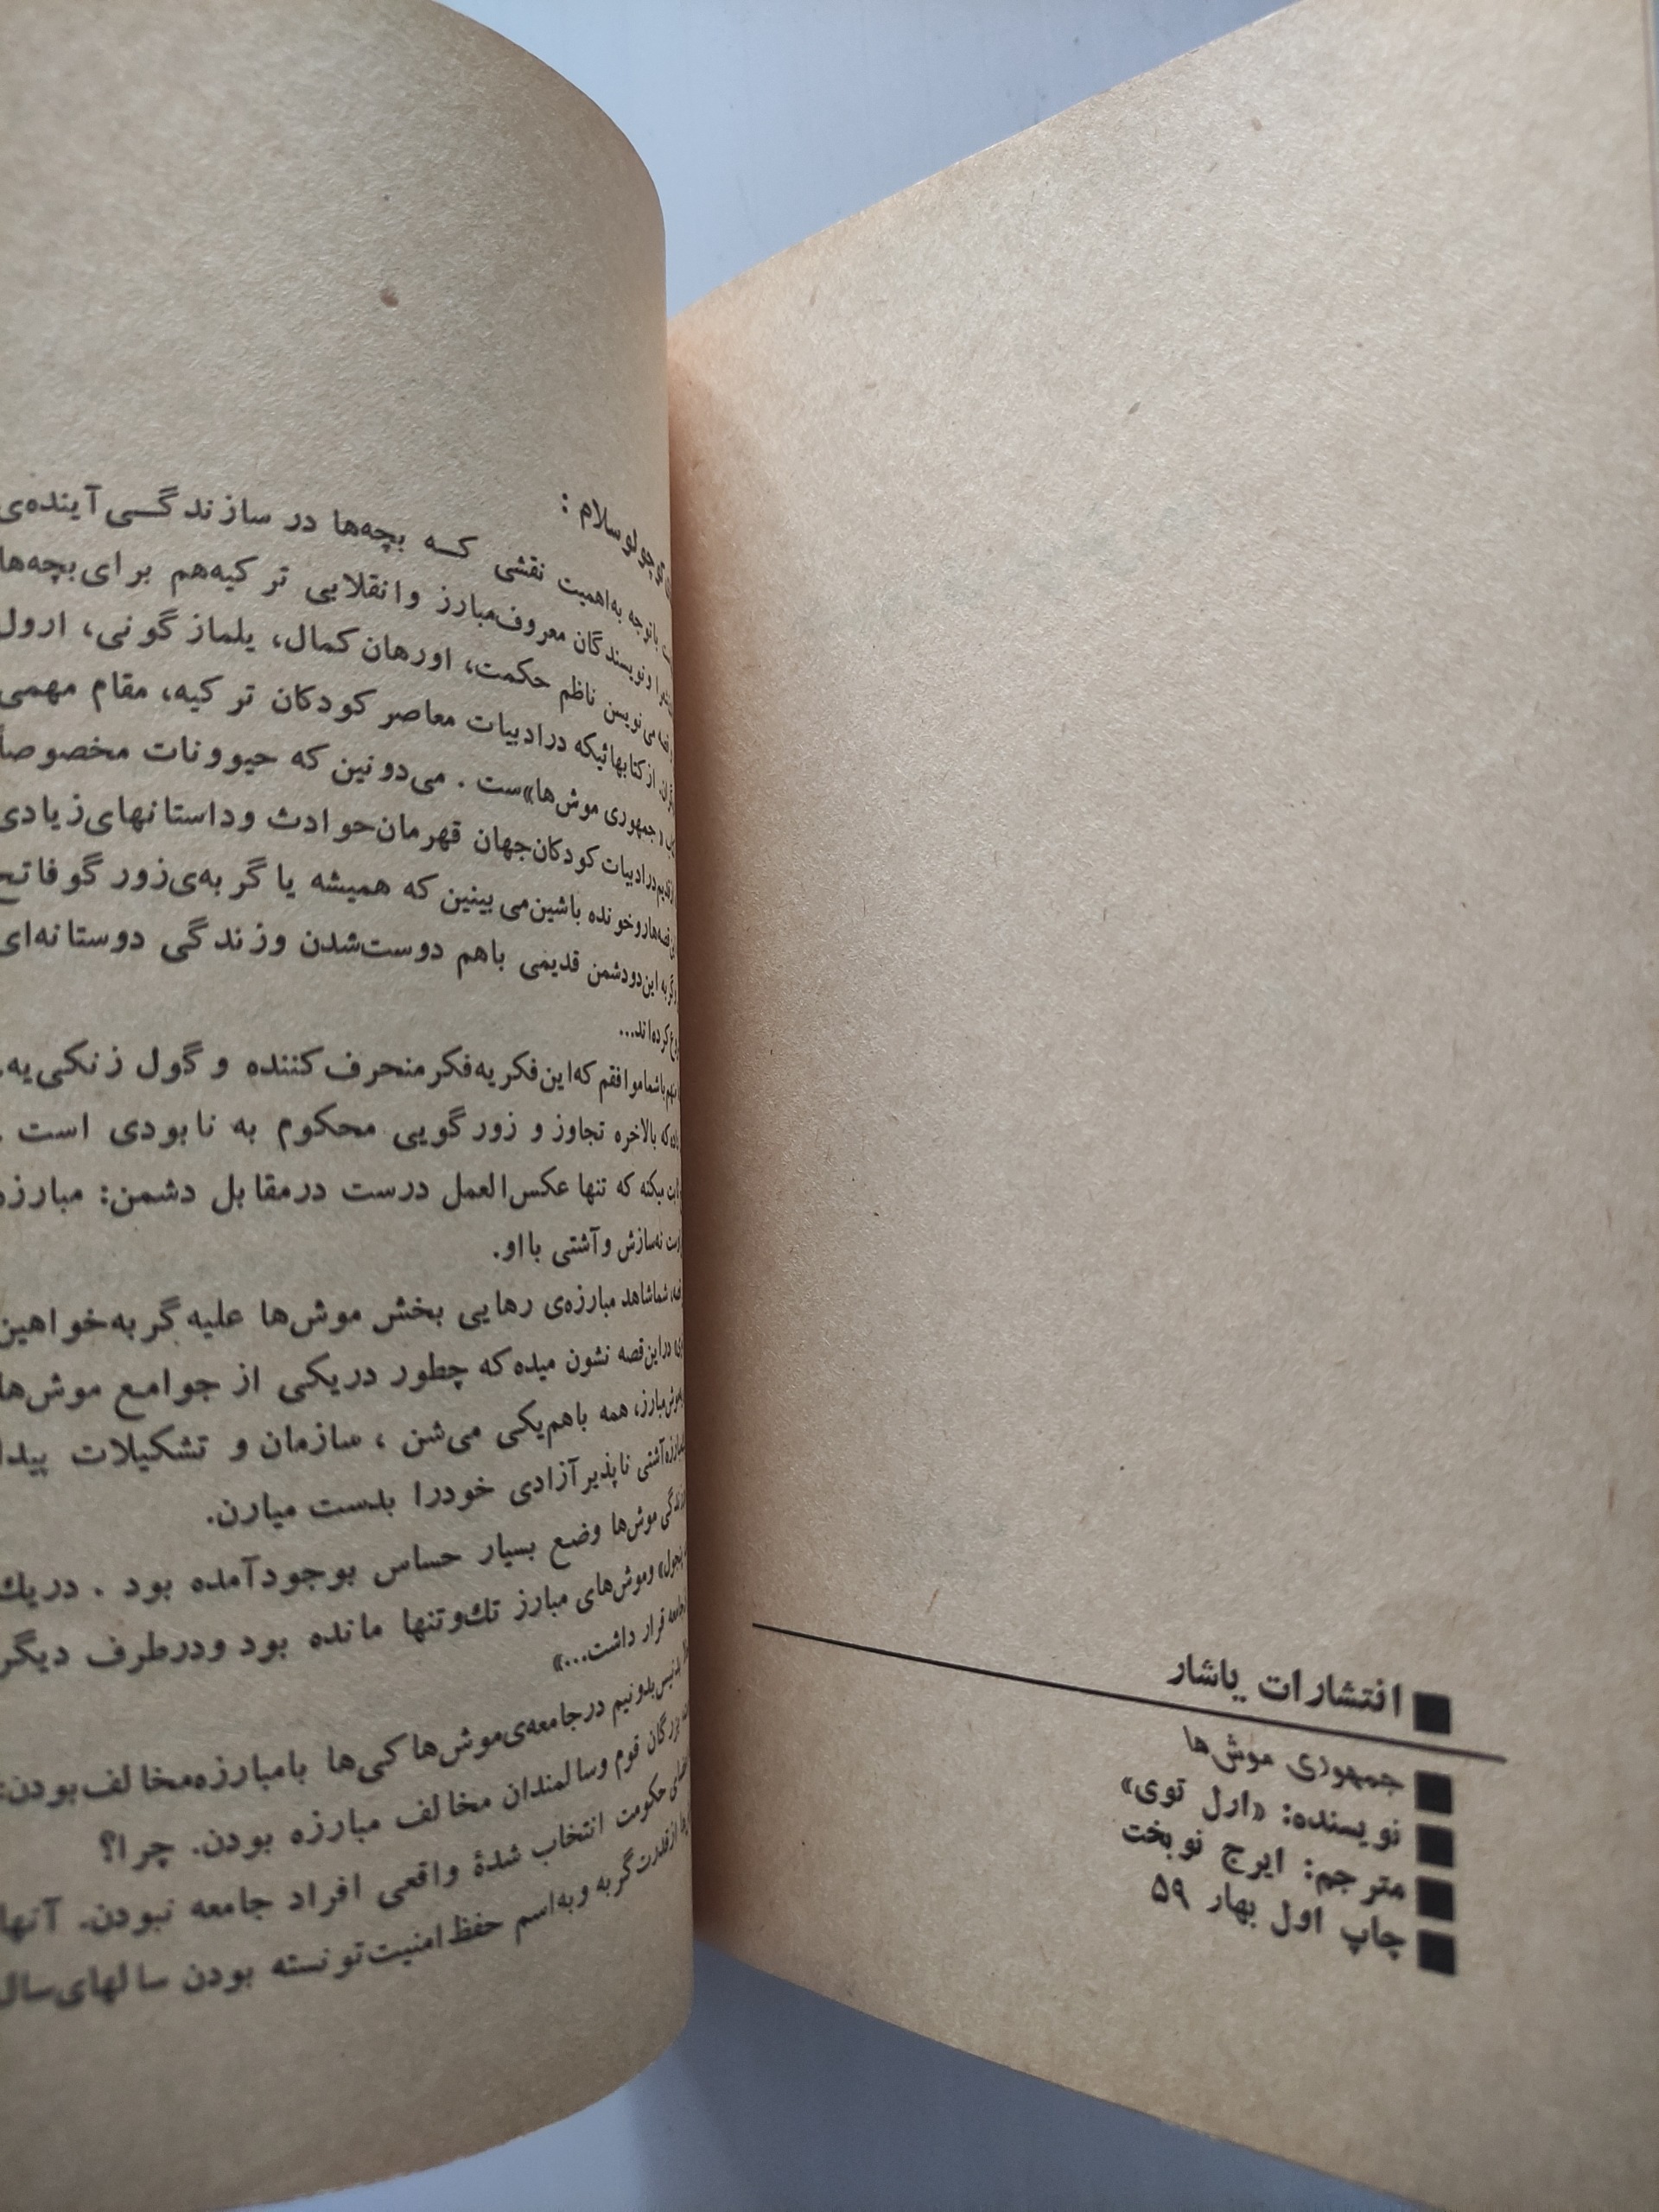 افتشارات یاشار
جمهوری موش‌ها
نویسنده: «ارل توی»
مترجم: ایرج نوبخت
چاپ اول بهار ۵۹
سلام :
باتوجه به‌اهمیت نقشی که بچه‌ها در سازندگی آینده‌ی
ونویسندگان معروف‌مبارز وانقلابی ترکیه‌هم برای‌بچه‌ها
می‌نویسن ناظم حکمت، اورهان‌کمال، یلماز گونی، ارول
از کتابهائیکه درادبیات معاصر کودکان ترکیه، مقام مهمی
جمهوری موش‌ها»ست . می‌دونین که حیوونات مخصوصاً
درادبیات کودکان‌جهان قهرمان‌حوادث وداستانهای‌زیادی
قصه‌هاروخونده باشین‌می‌بینین که همیشه یا گربه‌ی‌زورگوفاتح
این‌دودشمن قدیمی باهم دوست‌شدن وزندگی دوستانه‌ای
کرده‌اند...
باشماموافقم که‌این‌فکریه‌فکرمنحرف‌کننده و گول زنکی‌یه.
که بالاخره تجاوز و زورگویی محکوم به نابودی است .
میکنه که تنها عکس‌العمل درست درمقابل دشمن: مبارزه
نه‌سازش وآشتی بااو.
شماشاهد مبارزه‌ی رهایی بخش موش‌ها علیه گربه‌خواهین
دراین‌قصه نشون میده‌که چطور دریکی از جوامع موش‌ها
همه باهم‌یکی می‌شن ، سازمان و تشکیلات پیدا
آشتی ناپذیرآزادی خودرا بدست میارن.
موش‌ها وضع بسیار حساس بوجودآمده بود . دریك
وموش‌های مبارز تك‌وتنها مانده بود ودرطرف دیگر
قرار داشت...»
بدونیم درجامعه‌ی‌موش‌ها کی‌ها بامبارزه‌مخالف‌بودن؛
قوم وسالمندان مخالف مبارزه بودن. چرا؟
حکومت انتخاب شدهٔ واقعی افراد جامعه نبودن. آنها
ازقدرت‌گربه وبه‌اسم حفظ‌امنیت‌تونسته بودن سالهای‌سال